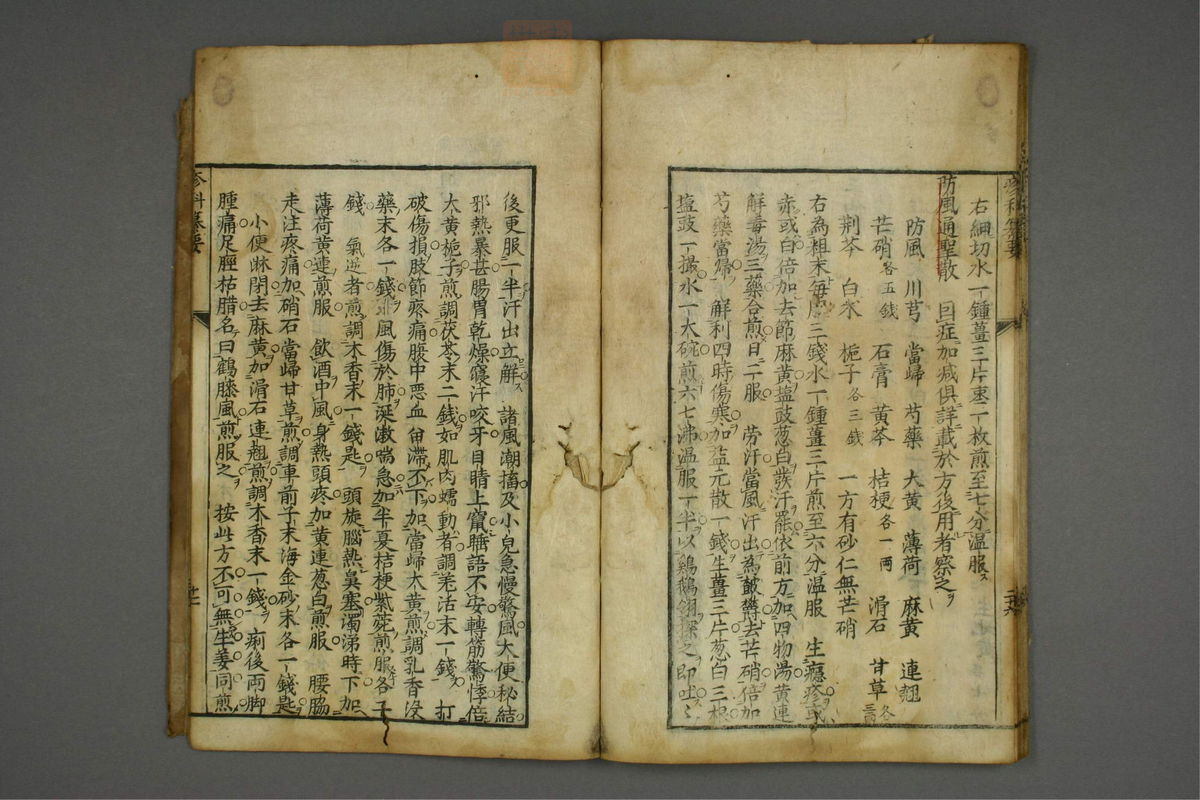 右細切水一鍾薑三片棗二枚煎至七分温服
防風通聖散 因症加減俱詳載於方後用者察之
防風 川芎 當歸 芍藥 大黄 薄荷 麻黄 連翹
芒硝各五錢 石膏 黄芩 桔梗各一兩 滑石 甘草各三兩
荆芥 白朮 梔子各三錢 一方有砂仁無芒硝
右為粗末毎服三錢水一鍾薑三片煎至六分温服 生癮疹或
赤或白倍加去節麻黄塩豉葱白發汗罷依前方加四物湯黄連
解毒湯三藥合煎日二服 劳汗當風汗出為皶欝去芒硝倍加
芍藥當歸 解利四時傷寒加益元散一錢生薑三片葱白三根
塩豉一撮水一大碗煎六七沸温服一半以鷄鵝翎探之即吐
後更服一半汗出立解 諸風潮搐及小兒急慢驚風大便秘結
邪熱暴甚腸胃乾燥寢汗咬牙目睛上竄睡語不安轉筋驚悸倍
大黄梔子煎調茯苓末二錢如肌肉蠕動者調羌活末一錢 打
破傷損肢節疼痛腹中悪血留滯不下加當歸大黄煎調乳香没
藥末各一錢 風傷於肺涎嗽喘急加半夏桔梗紫菀煎服各
錢 氣逆者煎調木香末一錢匙 頭旋腦熱鼻塞濁涕時下加
薄荷黄連煎服 飲酒中風身熱頭疼加黄連葱白煎服 腰脇
走注疼痛加硝石當歸甘草煎調車前子末海金砂末各一錢匙
小便淋閉去麻黄加滑石連翹煎調木香末一錢 痢後両脚
腫痛足脛枯腊名曰鶴膝風煎服之 按此方不可無生姜同煎